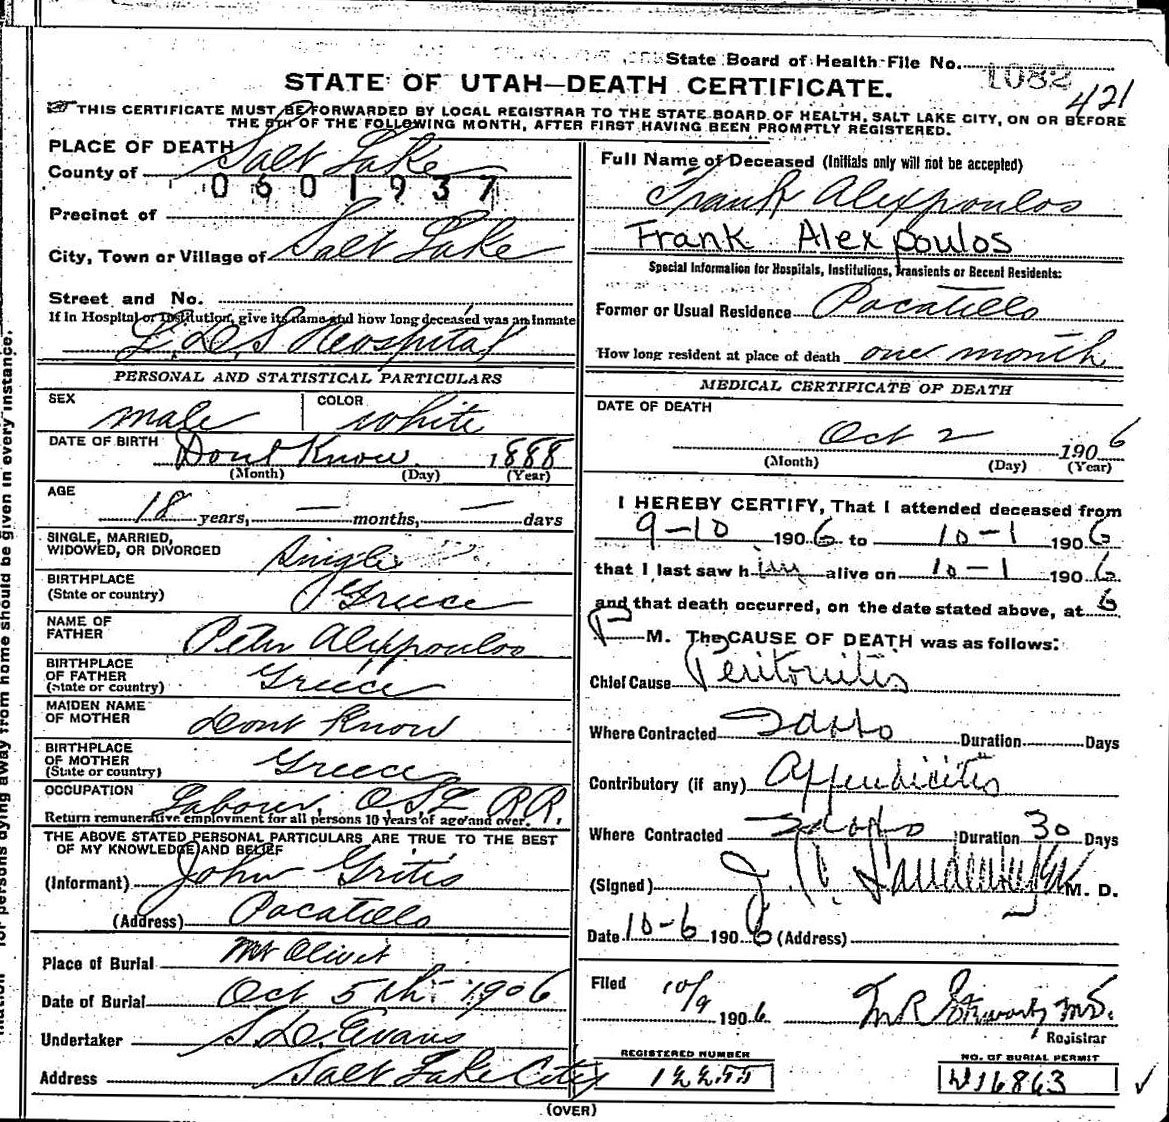 State Board of Health File No. 1082
421
STATE OF UTAH—DEATH CERTIFICATE.
THIS CERTIFICATE MUST BE FORWARDED BY LOCAL REGISTRAR TO THE STATE BOARD OF HEALTH, SALT LAKE CITY, ON OR BEFORE
THE 5TH OF THE FOLLOWING MONTH, AFTER FIRST HAVING BEEN PROMPTLY REGISTERED.
PLACE OF DEATH
County of Salt Lake
0601937
Precinct of
City, Town or Village of Salt Lake
Street and No.
If in Hospital or Institution, give its name and how long deceased was an inmate
L.D.S Hospital
PERSONAL AND STATISTICAL PARTICULARS
SEX male COLOR white
DATE OF BIRTH Dont Know 1888
(Month) (Day) (Year)
AGE
18 years, — months, — days
SINGLE, MARRIED,
WIDOWED, OR DIVORCED Single
BIRTHPLACE
(State or country) Greece
NAME OF
FATHER Peter Alexpoulos
BIRTHPLACE
OF FATHER
(State or country) Greece
MAIDEN NAME
OF MOTHER Dont Know
BIRTHPLACE
OF MOTHER
(State or country) Greece
OCCUPATION Labour, O S L R R,
Return remunerative employment for all persons 10 years of age and over.
THE ABOVE STATED PERSONAL PARTICULARS ARE TRUE TO THE BEST
OF MY KNOWLEDGE AND BELIEF
(Informant) John Gritis
(Address) Pocatello
Place of Burial Mt Olivet
Date of Burial Oct 5th 1906
Undertaker S. D. Evans
Address Salt Lake City
Full Name of Deceased (Initials only will not be accepted)
Frank Alexpoulos
Frank Alexpoulos
Special Information for Hospitals, Institutions, Transients or Recent Residents:
Former or Usual Residence Pocatello
How long resident at place of death one month
MEDICAL CERTIFICATE OF DEATH
DATE OF DEATH
Oct 2 1906
(Month) (Day) (Year)
I HEREBY CERTIFY, That I attended deceased from
9-10 1906 to 10-1 1906
that I last saw him alive on 10-1 1906
and that death occurred, on the date stated above, at 6
P M. The CAUSE OF DEATH was as follows:
Chief Cause Peritonitis
Where Contracted Idaho Duration Days
Contributory (if any) Appendicitis
Where Contracted Idaho Duration 30 Days
(Signed) J. M. D.
Date 10-6 1906 (Address)
Filed 10/9 1906 M R Stewart MD.
Registrar
REGISTERED NUMBER
NO. OF BURIAL PERMIT
W16863
(OVER)
for persons dying away from home should be given in every instance.